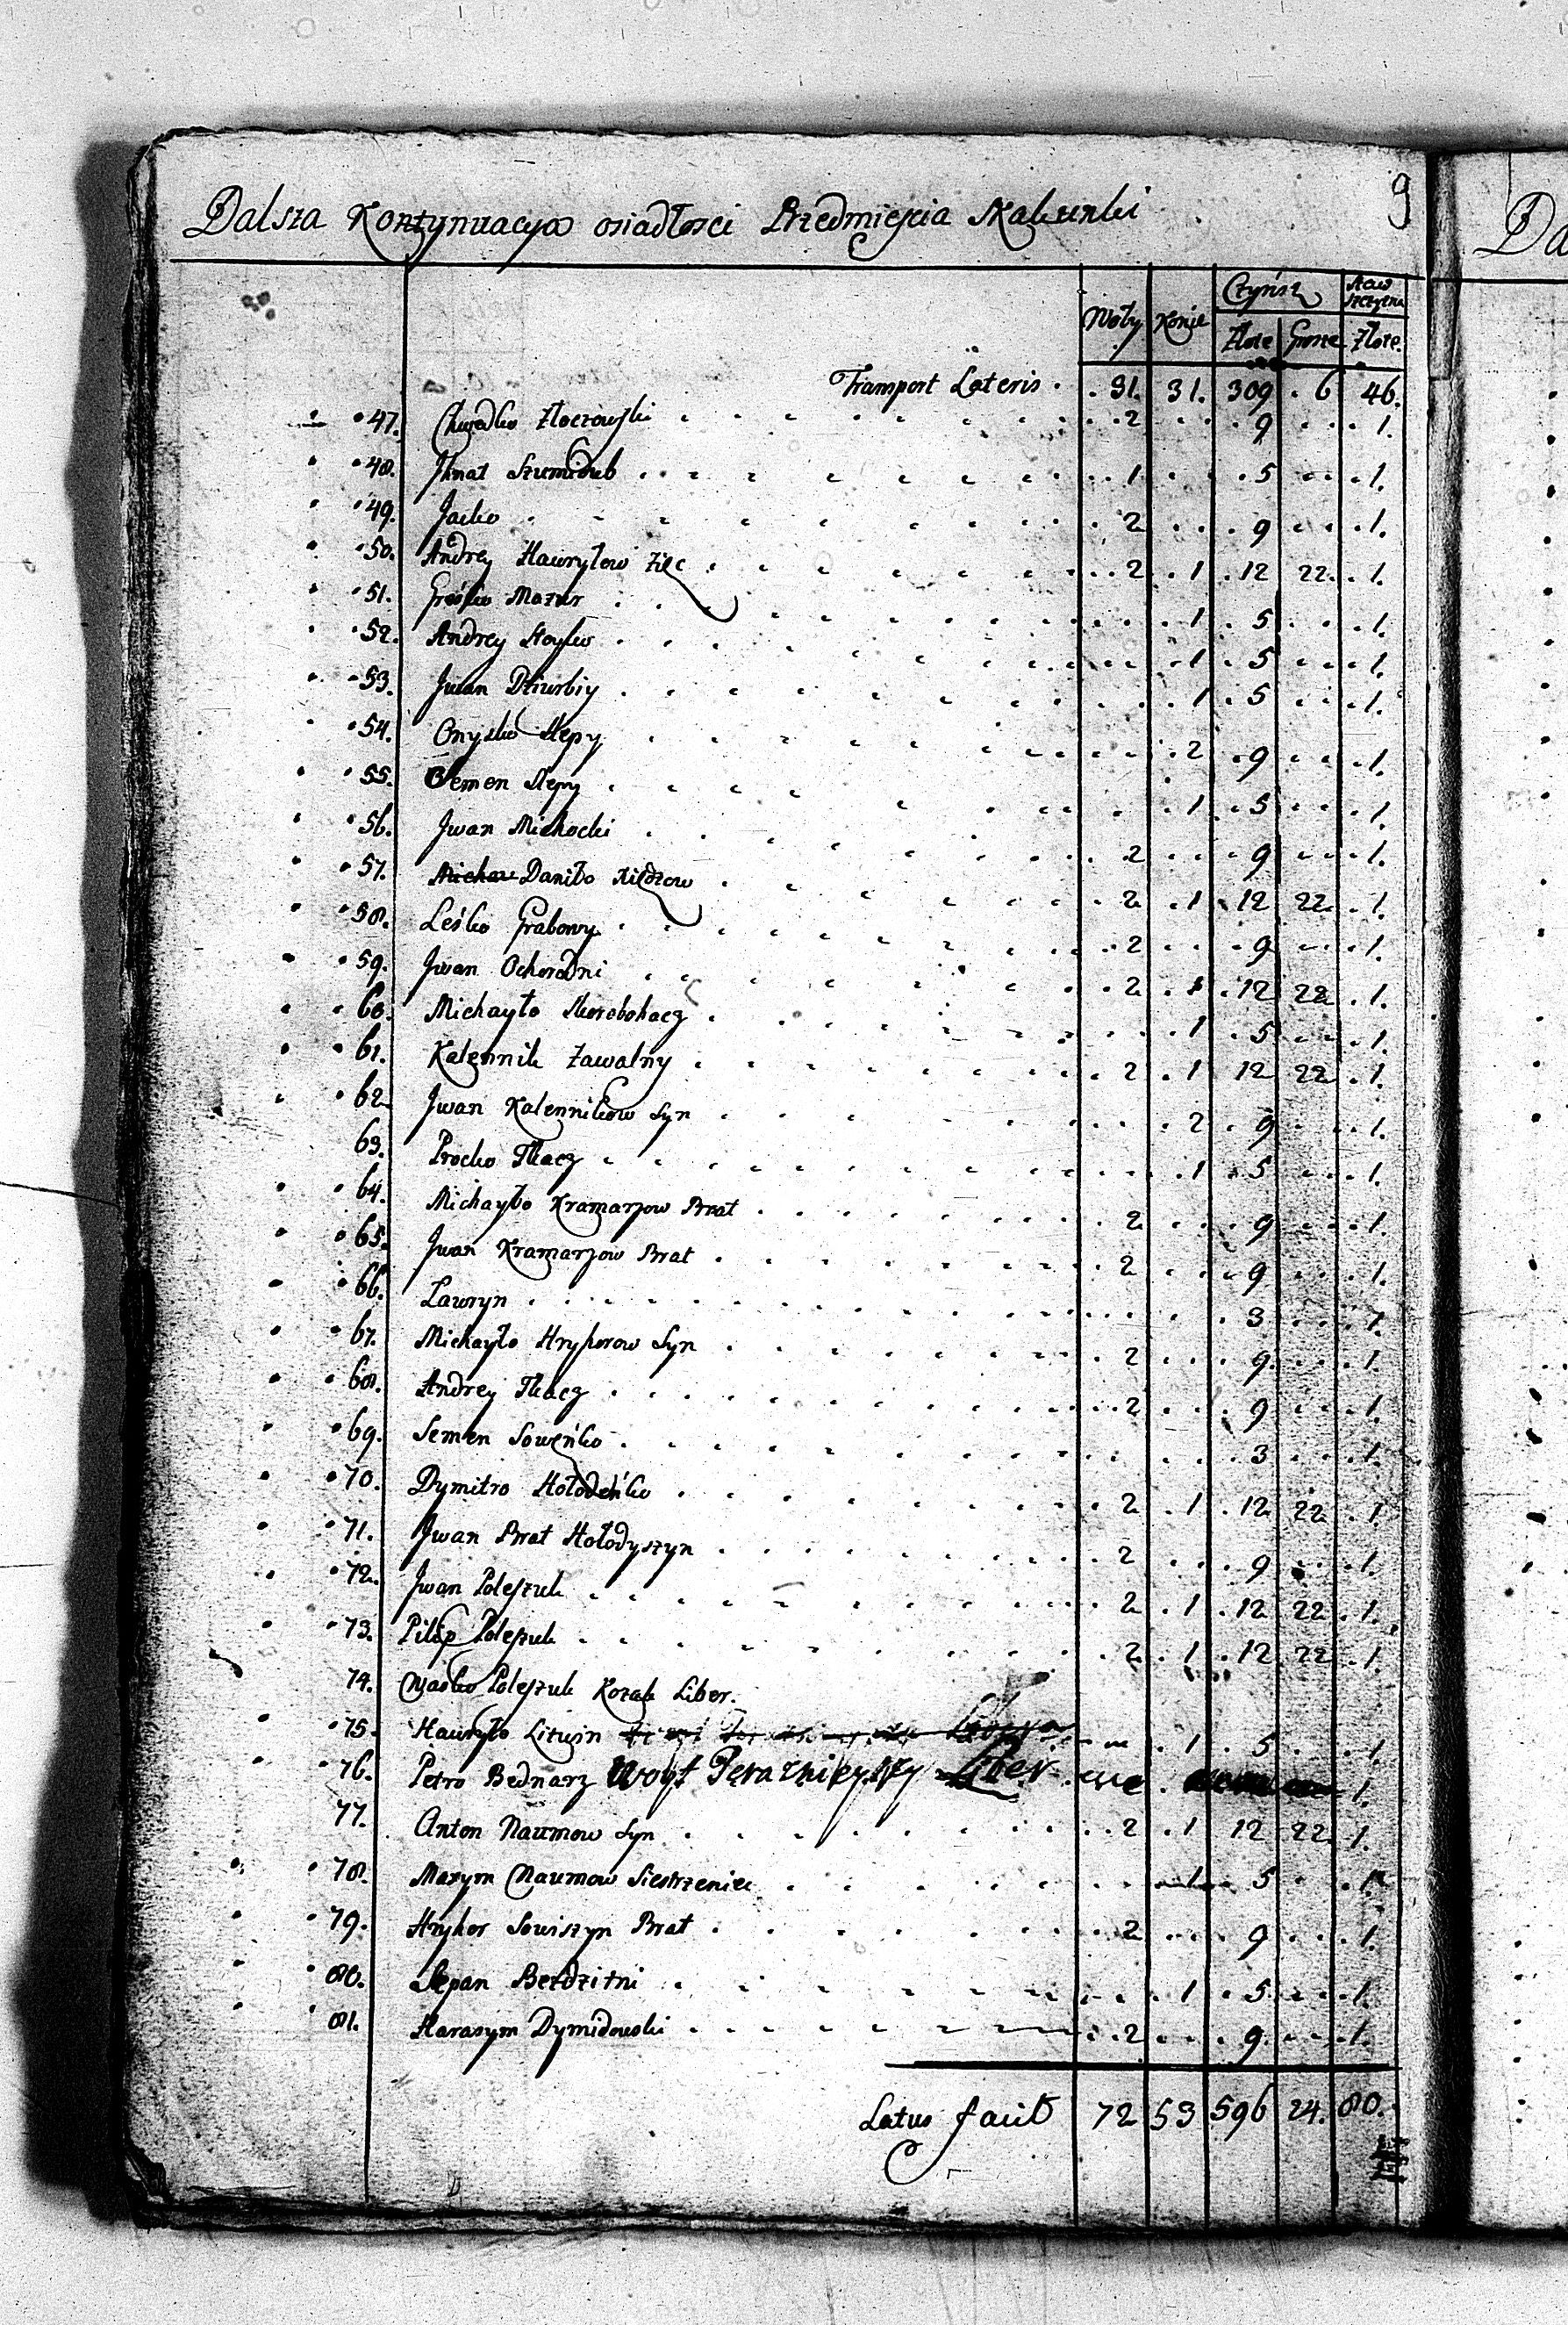 9
Dalsza Kontynuacya osiadłosci Przedmieścia Skalenki
Woły Konie Czynsz Staw szczyzna
Złote Grosze Złote.
Transport Lateris . 31. 31. 309 6 46.
47. Chwedko Złoczowski 2 9 1.
48. Jhnat Szumidub 1 5 1.
49. Jacko 2 9 1.
50. Andrey Hawryłow Zięc 2 1 12 22 1.
51. Hryśko Mazur 1 5 1.
52. Andrey Stoyko 1 5 1.
53. Jwan Dziurbiy 1 5 1.
54. Onysko Slepy 2 9 1.
55. Semen Slepy 1 5 1.
56. Jwan Michocki 2 9 1.
57. Daniło 2 1 12 22 1.
58. Leśko Grabowy 2 9 1.
59. Jwan Ochoradni 2 1 12 22 1.
60. Michayło Skorobohacz 1 5 1.
61. Kalennik Zawalny 2 1 12 22 1.
62 Jwan Kalennikow Syn 2 9 1.
63. Procko Tkacz 1 5 1.
64. Michayło Kramarzow Brat 2 9 1.
65. Jwan Kramarzow Brat 2 9 1.
66. Lawryn 3 1.
67. Michayło Hryhorow Syn 2 9 1.
68. Andrey Tkacz 2 9 1.
69. Semen Soweńko 3 1.
70. Dymitro Hołodeńko 2 1 12 22 1
71. Jwan Brat Hołodyszyn 2 9 1.
72. Jwan Poleszuk 2 1 12 22 1.
73. Pilip Poleszuk 2 1 12 22 1.
74. Wasko Poleszuk Kozak Liber.
75. Hawryło Litwin 1 5 1.
76. Petro Bednarz Woyt Liber 1.
77. Anton Naumow Syn 2 1 12 22 1.
78. Maxym Naumow Siestrzeniec 1 5 1.
79. Hryhor Sowiszyn Brat 2 9 1.
80. Stepan Bezdzitni 1 5 1.
81. Harasym Dymidowski 2 9 1.
Latus facit 72 53 596 24. 80.